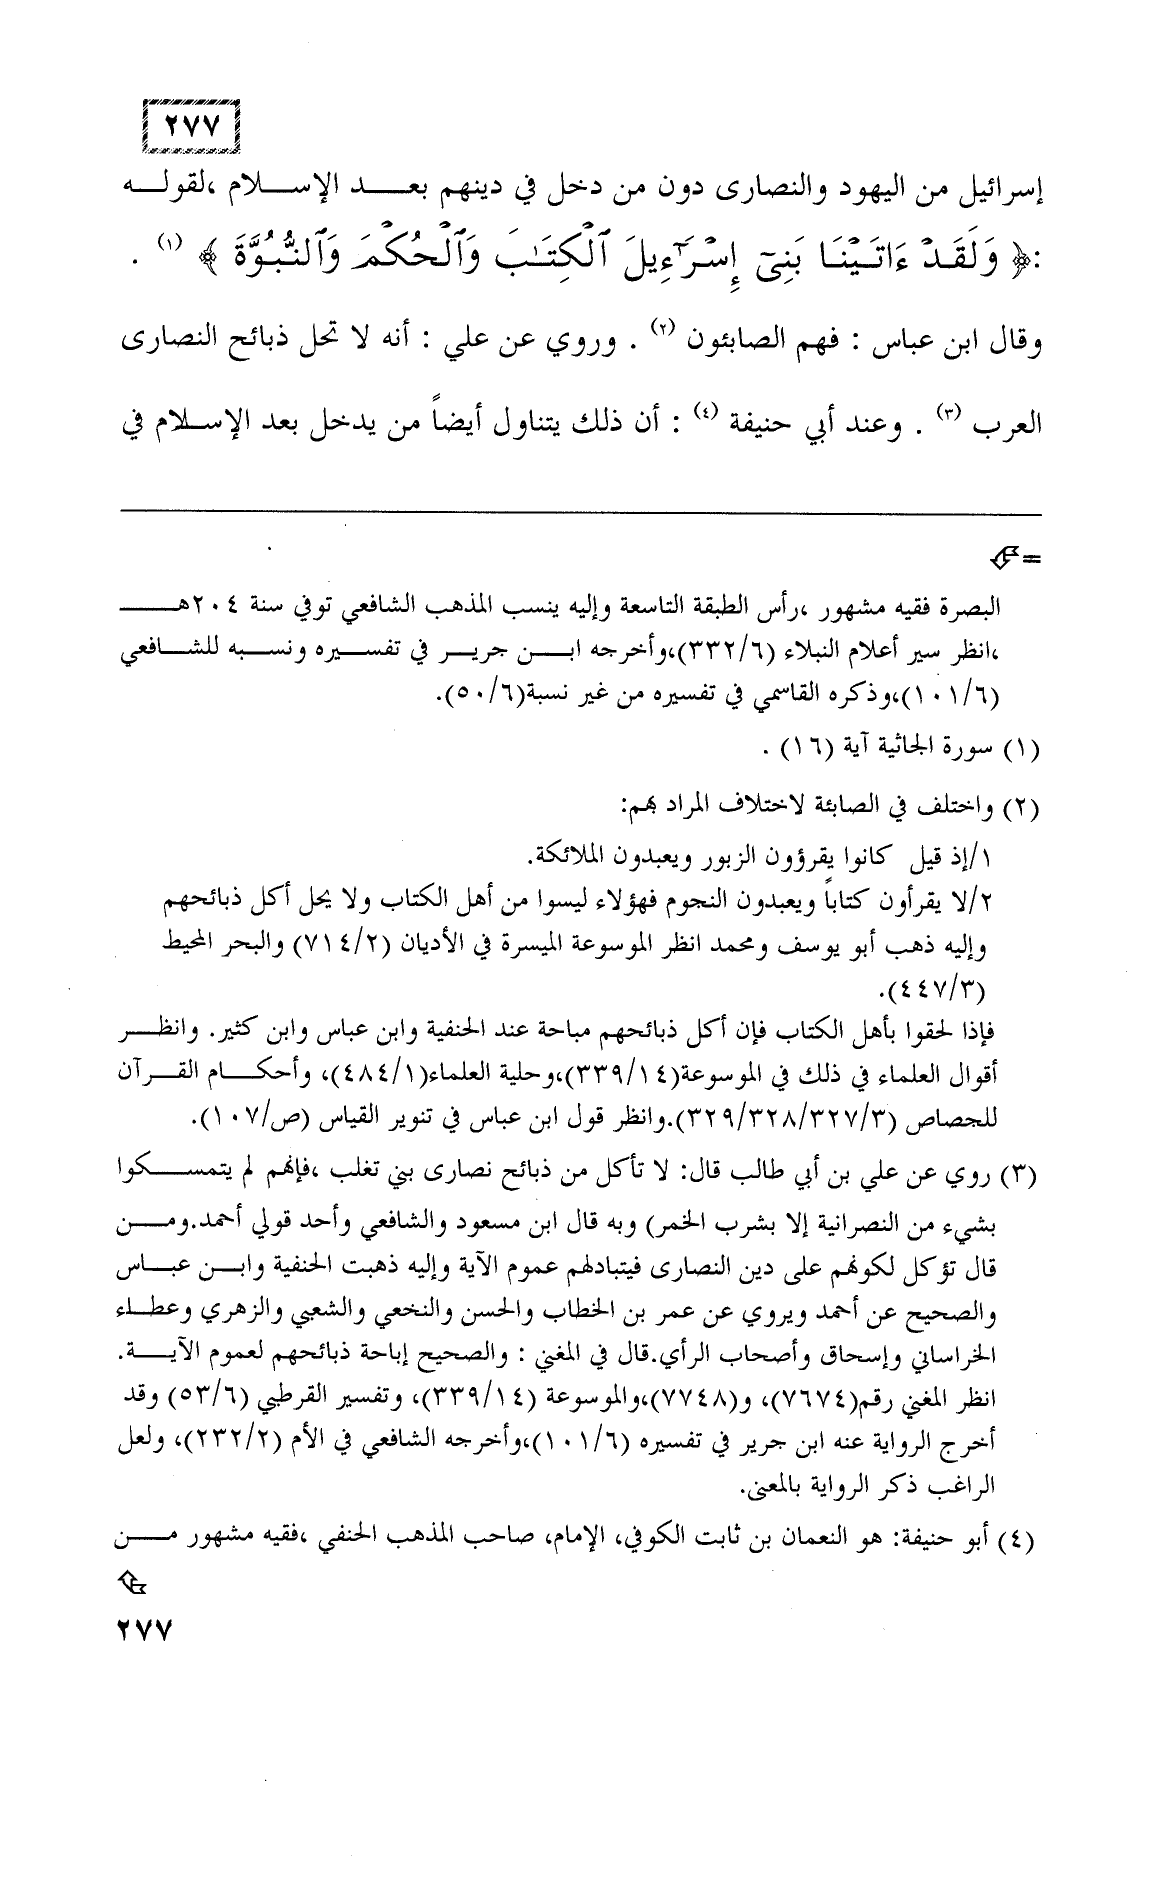 ٢٧٧
إسرائيل من اليهود والنصارى دون من دخل في دينهم بعد الإسلام ،لقوله
:﴿ وَلَقَدْ ءَاتَيْنَا بَنِىٓ إِسْرَٰٓءِيلَ ٱلْكِتَٰبَ وَٱلْحُكْمَ وَٱلنُّبُوَّةَ ﴾ (١) .
وقال ابن عباس : فهم الصابئون (٢) . وروي عن علي : أنه لا تحل ذبائح النصارى
العرب (٣) . وعند أبي حنيفة (٤) : أن ذلك يتناول أيضاً من يدخل بعد الإسلام في
=
البصرة فقيه مشهور ،رأس الطبقة التاسعة وإليه ينسب المذهب الشافعي توفي سنة ٢٠٤هـ
،انظر سير أعلام النبلاء (٣٣٢/٦)،وأخرجه ابن جرير في تفسيره ونسبه للشافعي
(١٠١/٦)،وذكره القاسمي في تفسيره من غير نسبة(٥٠/٦).
(١) سورة الجاثية آية (١٦) .
(٢) واختلف في الصابئة لاختلاف المراد بهم:
١/إذ قيل كانوا يقرؤون الزبور ويعبدون الملائكة.
٢/لا يقرأون كتاباً ويعبدون النجوم فهؤلاء ليسوا من أهل الكتاب ولا يحل أكل ذبائحهم
وإليه ذهب أبو يوسف ومحمد انظر الموسوعة الميسرة في الأديان (٧١٤/٢) والبحر المحيط
(٤٤٧/٣).
فإذا لحقوا بأهل الكتاب فإن أكل ذبائحهم مباحة عند الحنفية وابن عباس وابن كثير. وانظر
أقوال العلماء في ذلك في الموسوعة(٣٣٩/١٤)،وحلية العلماء(٤٨٤/١)، وأحكام القرآن
للجصاص (٣٢٩/٣٢٨/٣٢٧/٣).وانظر قول ابن عباس في تنوير القياس (ص/١٠٧).
(٣) روي عن علي بن أبي طالب قال: لا تأكل من ذبائح نصارى بني تغلب ،فإنهم لم يتمسكوا
بشيء من النصرانية إلا بشرب الخمر) وبه قال ابن مسعود والشافعي وأحد قولي أحمد.ومن
قال تؤكل لكونهم على دين النصارى فيتبادلهم عموم الآية وإليه ذهبت الحنفية وابن عباس
والصحيح عن أحمد ويروي عن عمر بن الخطاب والحسن والنخعي والشعبي والزهري وعطاء
الخراساني وإسحاق وأصحاب الرأي.قال في المغني : والصحيح إباحة ذبائحهم لعموم الآية.
انظر المغني رقم(٧٦٧٤)، و(٧٧٤٨)،والموسوعة (٣٣٩/١٤)، وتفسير القرطبي (٥٣/٦) وقد
أخرج الرواية عنه ابن جرير في تفسيره (١٠١/٦)،وأخرجه الشافعي في الأم (٢٣٢/٢)، ولعل
الراغب ذكر الرواية بالمعنى.
(٤) أبو حنيفة: هو النعمان بن ثابت الكوفي، الإمام، صاحب المذهب الحنفي ،فقيه مشهور من
٢٧٧